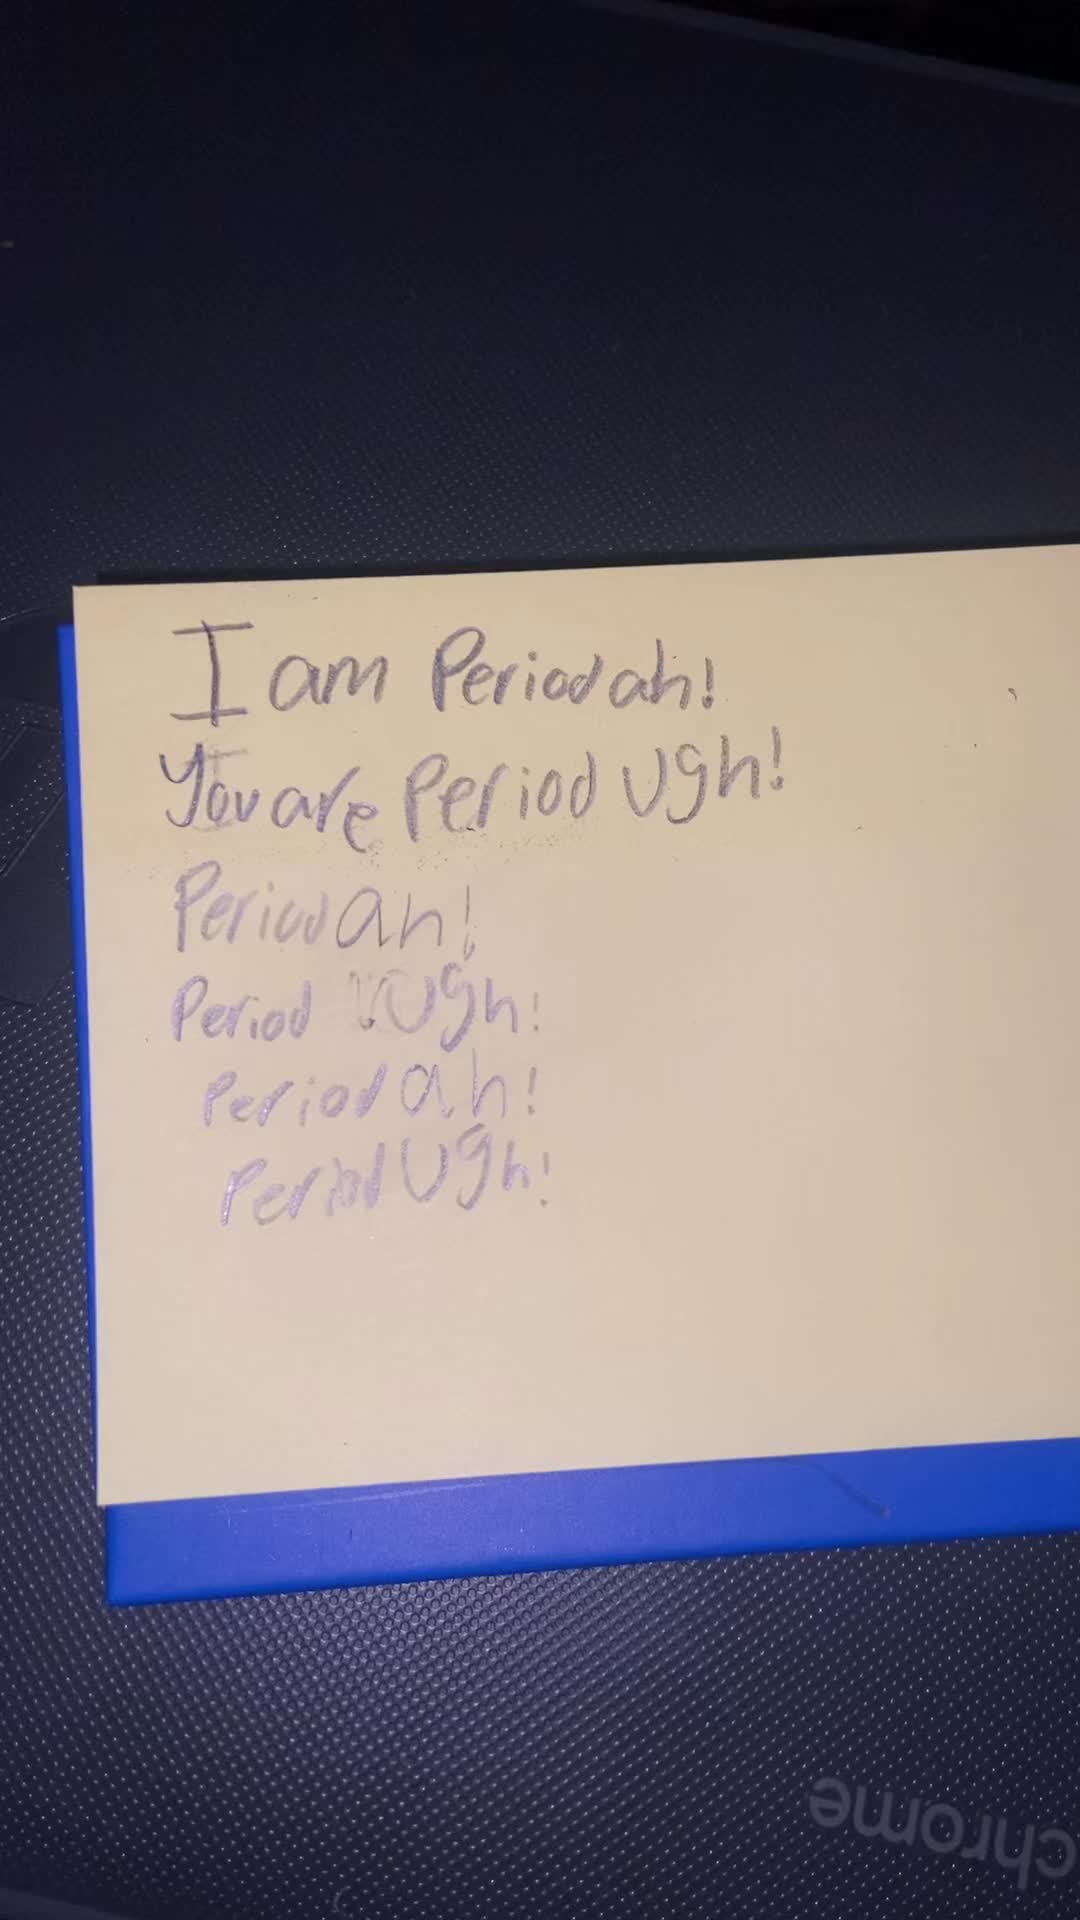 I am Period ah!
You are Period Ugh!
Period ah!
Period Ugh!
Period ah!
Period Ugh!
chrome